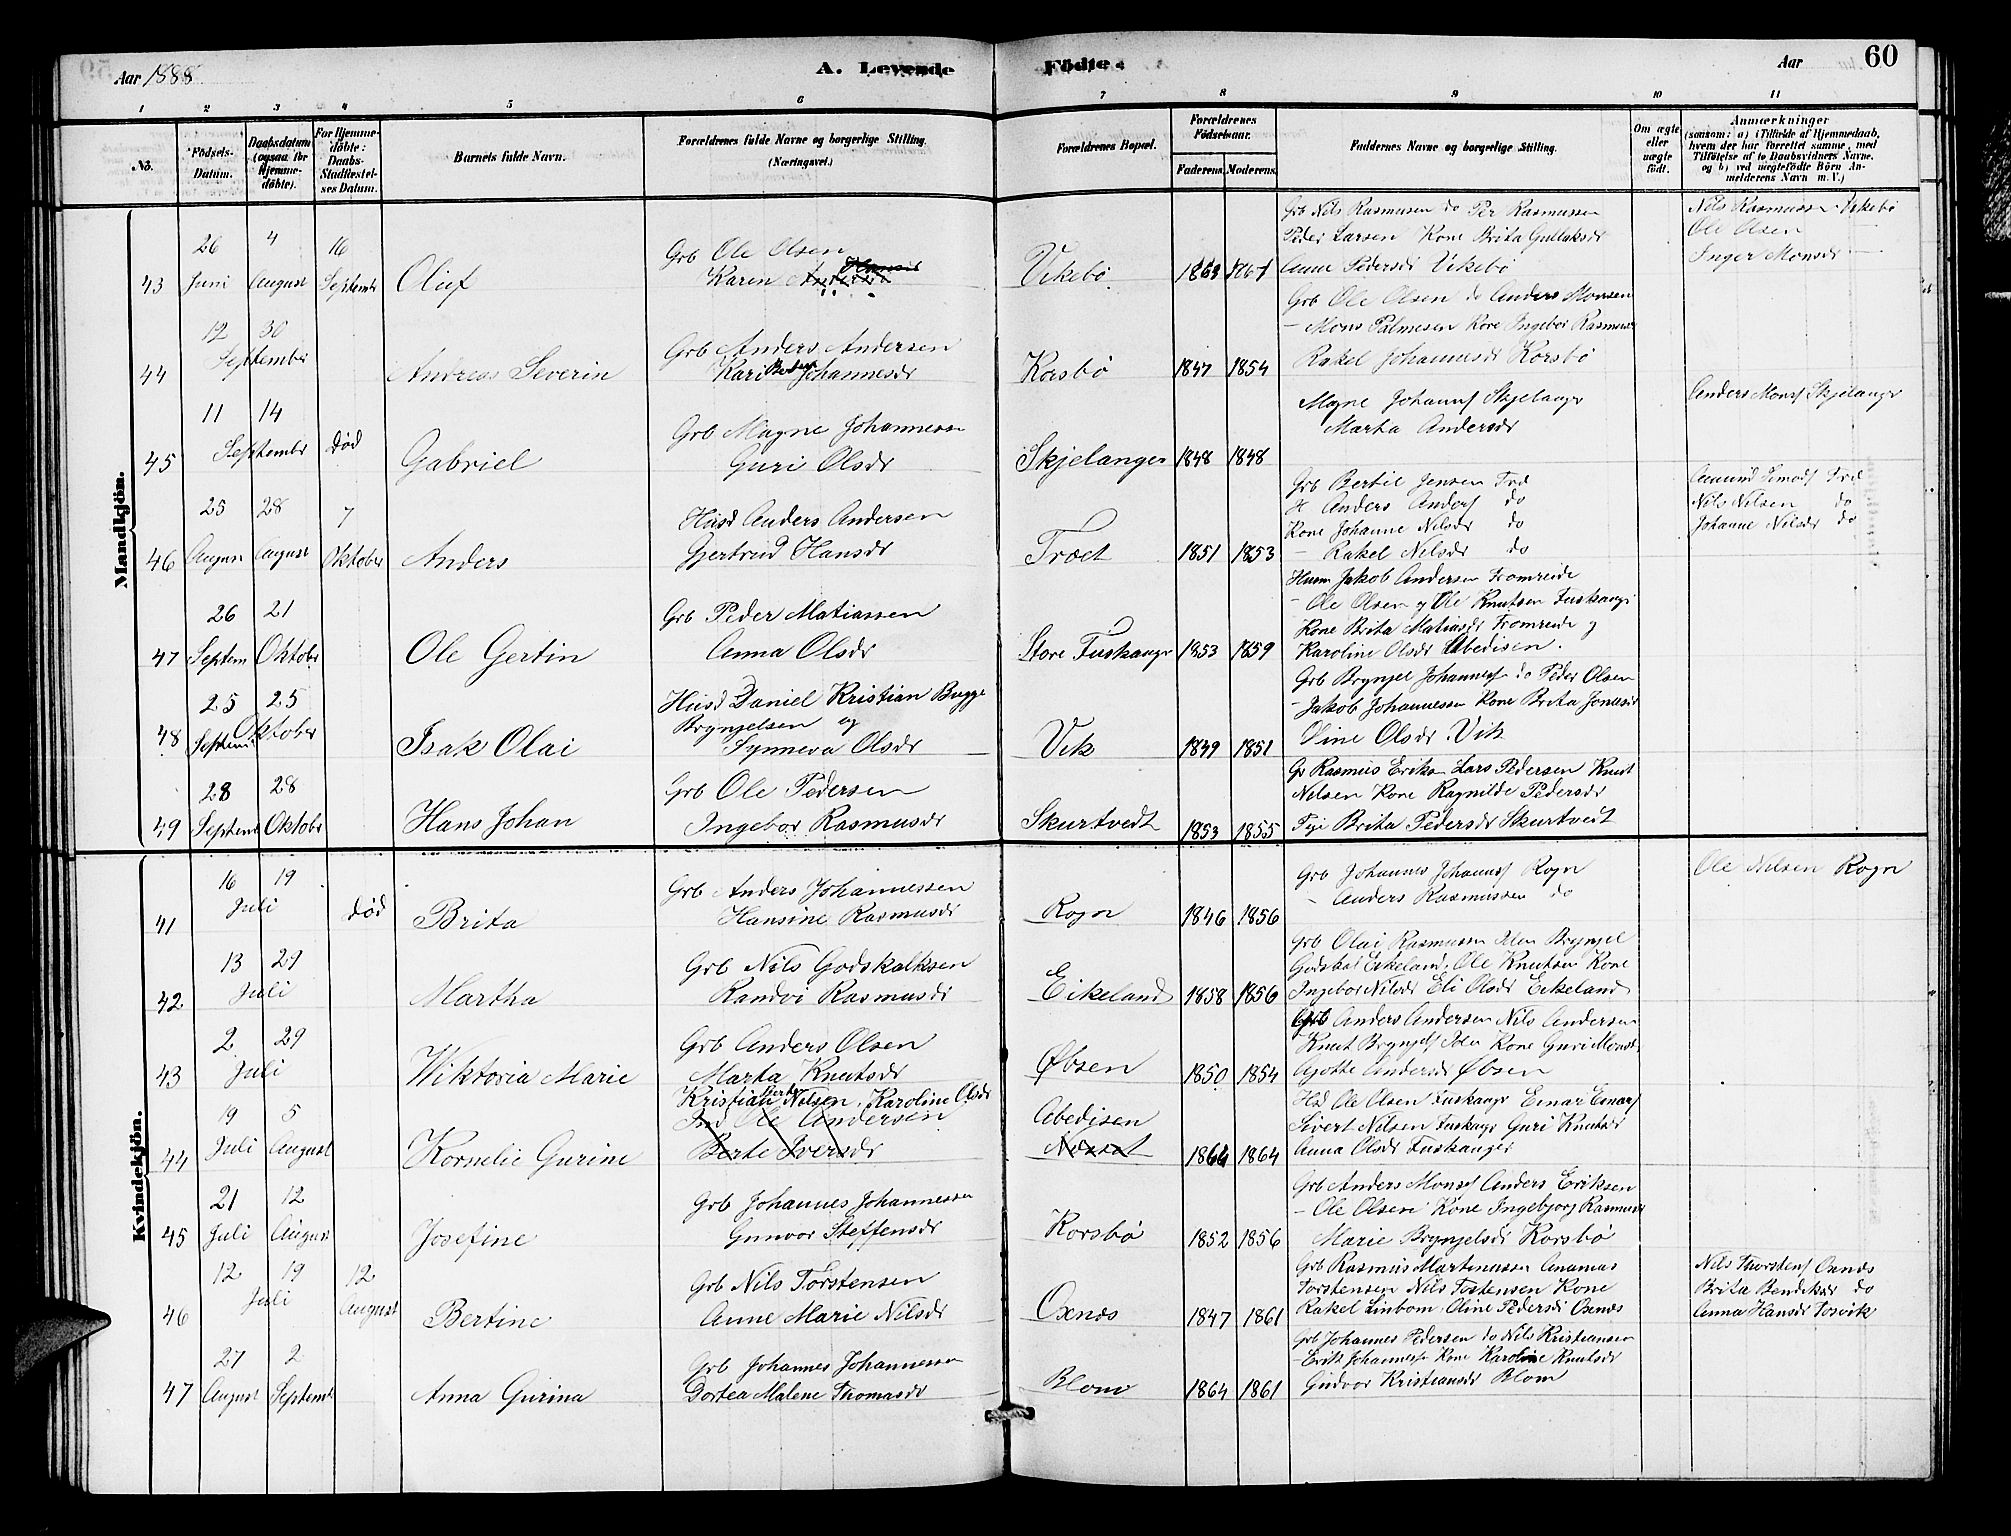 Aar 1888
A. Levende Födte.
Aar
60
1 2 3 4 5 6 7 8 9 10 11
No.
Födsels-Datum.
Daabsdatum (ogsaa for Hjemmedöbte).
For Hjemmedöbte: Daabs-Stadfæstelses Datum.
Barnets fulde Navn.
Forældrenes fulde Navne og borgerlige Stilling. (Næringsvei.)
Forældrenes Bopæl.
Forældrenes Födselsaar.
Faderens. Moderens.
Faddernes Navne og borgerlige Stilling.
Om ægte eller uægte födt.
Anmærkninger
(saasom: a) i Tilfælde af Hjemmedaab, hvem der har forrettet samme, med Tilföielse af to Daabsvidners Navne, og b) ved uægtefödte Börn Anmelderens Navn m. V.)
Mandkjön.
43
26 Juni
4 August
16 Septembr
Oluf
Grb Ole Olsen
Karen
Vikebø
1863 1861
Grb Nils Rasmusen do Per Rasmussen
Peder Larsen Kone Brita Gullaksdr
Anne Pedersdr Vikebø
Nils Rasmussen Vikebø
Ole Olsen
Inger Monsdr
44
12 30
September
Andreas Severin
Grb Anders Andersen
Kari Johannesdr
Korsbø
1847 1854
Grb Ole Olsen do Anders Monsen
- Mons Palmesen Kone Ingebor Rasmusdr
Rakel Johannesdr Korsbø
45
11 14
Septembr
død
Gabriel
Grb Magne Johannessen
Guri Olsdr
Skjelanger
1848 1848
Magne Johannesf Skjelangr
Marta Andersdr
Anders Monsf Skjelangr
46
25 August
28 August
7 Oktober
Anders
Husd Anders Andersen
Gjertrud Hansdr
Træet
1851 1853
Grb Bertil Jensen Træ
H Anders Andersf do
Kone Johanne Nilsdr do
- Rakel Nilsdr do
Amund Simonsf Træ
Nils Nilsen do
Johanne Nilsdr do
47
26 Septem
21 Oktobr
Ole Gertin
Grb Peder Matiassen
Anna Olsdr
Store Fuskangr
1853 1859
Husm Jakob Andersen Fromreide
- Ole Olsen og Ole Knutsen Fuskangr
Kone Brita Matiasdr Fromreide og
Karoline Olsdr Abedisen.
48
25 Septem
25 Oktober
Isak Olai
Husd Daniel Kristian Bugge
Brynjelsen og
Synneva Olsdr
Vik
1849 1851
Grb Brynjel Johannesf do Peder Olsen
- Jakob Johannessen Kone Brita Jonasdr
Oline Olsdr Vik
49
28 Septem
28 Oktobr
Hans Johan
Grb Ole Pedersen
Ingebor Rasmusdr
Skurtvedt
1853 1855
Gr Rasmus Eriksn Lars Pedersen Knut
Nilsen Kone Ragnilde Pedersdr
Pige Brita Pedersdr Skurtvedt
Kvindekjön.
41
16 19
Juli
død
Brita
Grb Anders Johannessen
Hansine Rasmusdr
Rogn
1846 1856
Grb Johannes Johannesf Rogn
- Anders Rasmussen do
Ole Nilsen Rogn
42
13 29
Juli
Martha
Grb Nils Godskalksen
Randvi Rasmusdr
Eikeland
1858 1856
Grb Olai Rasmussen Brynjel
Eikeland, Ole Knutsen Kone
Ingebor Nilsdr Eli Olsdr Eikeland
43
2 29
Juli
Wiktoria Marie
Grb Anders Olsen
Marta Knutsdr
Øbsen
1850 1854
Grb Anders Andersen Nils Andersen
Knut Brynjelsf Kone Guri Monsdr
Gjøtte Andersdr Øbsen
44
19 Juli
5 August
Kornelie Gurine
Kristian Nilsen, Karoline Olsdr
Ind Ole Andersen
Berte Iversdr
Abedisen
1864 1864
Hsd Ole Olsen Fuskangr Einar Einarsf
Sivert Nilsen Fuskangr Guri Knutsdr
Anna Olsdr Fuskanger
45
21 Juli
12 August
Josefine
Grb Johannes Johannessen
Gunvor Steffensdr
Korsbø
1852 1856
Grb Anders Monsf Anders Eriksen
- Ole Olsen Kone Ingebjorg Rasmusdr
Marie Brynjelsdr Korsbø
46
12 19
Juli
12 August
Bertine
Grb Nils Torstensen
Anne Marie Nilsdr
Oxnæs
1847 1861
Grb Rasmus Martinussen Ananias
Torstensen Nils Torstensen Kone
Rakel Linbom, Oline Pedersdr Oxnæs
Nils Thorstensf Oxnæs
Brita Bendiksdr do
Anna Hansdr Tosvik
47
27 August
2 Septemb
Anna Gurina
Grb Johannes Johannessen
Dortea Malene Thomasdr
Blom
1864 1861
Grb Johannes Pedersen do Nils Kristiansen
- Erik Johannesf Kone Karoline Knutsdr
Gudvor Kristiansdr Blom